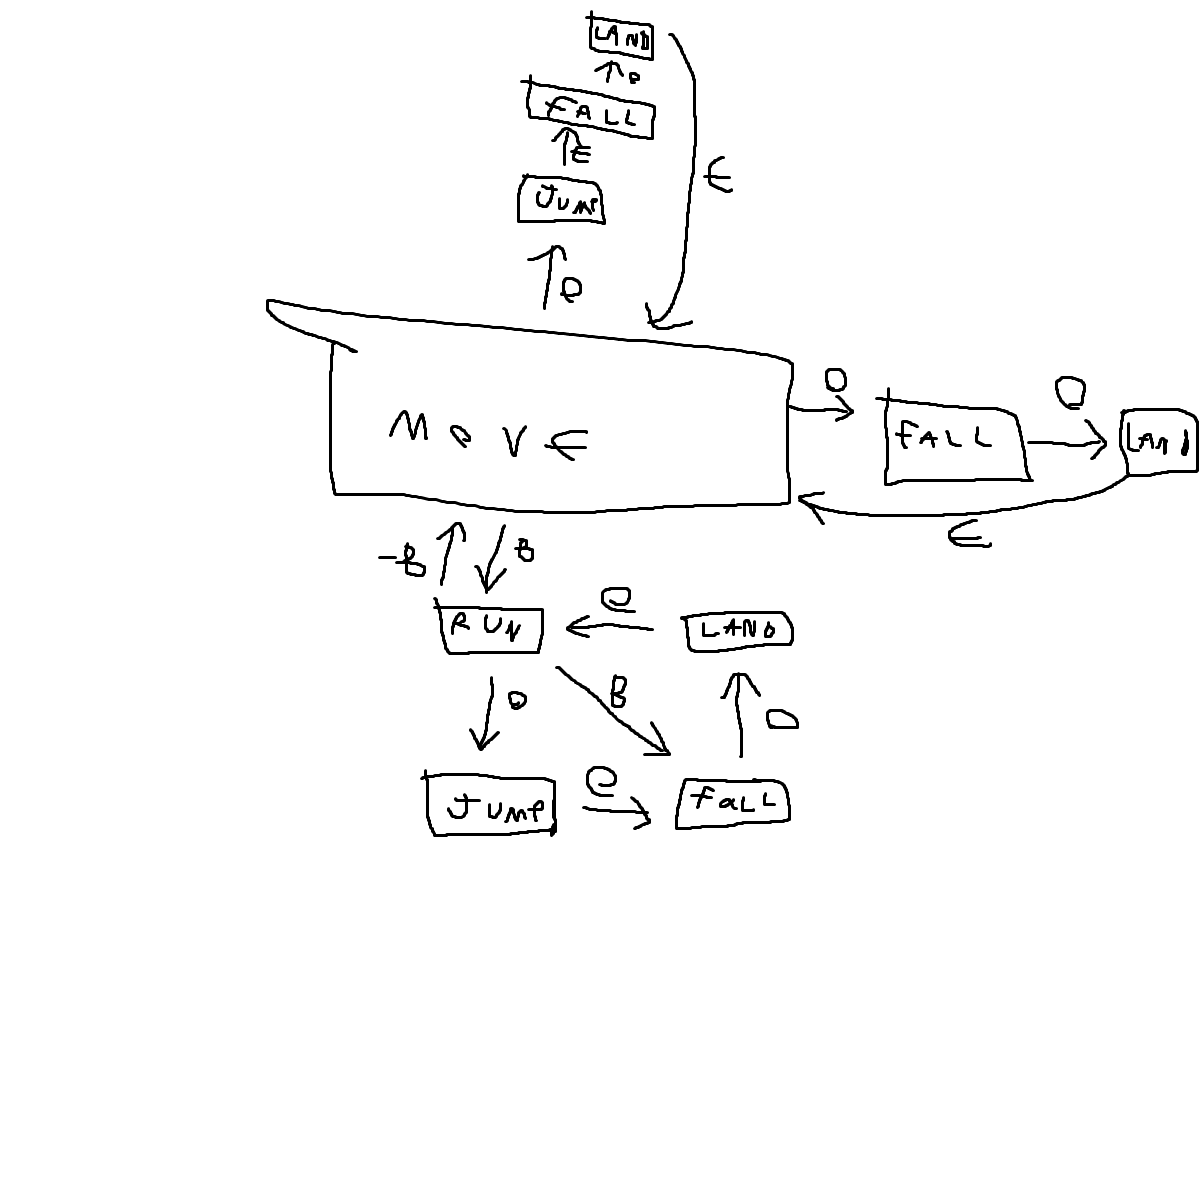 LAND
FALL
E
JUMP
E
O
MOVE
O
FALL
O
LAND
E
-B
B
RUN
e
LAND
B
D
JUMP
e
FaLL